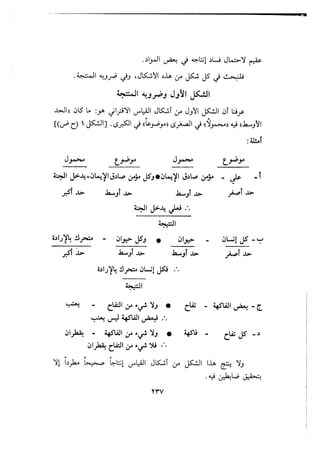 عقيم لاحتمال فساد إنتاجه في بعض المواد.
فلنبحث في كل شكل من هذه الأشكال، وفي ضروبه المنتجة.
الشكل الأول وضروبه المنتجة
عرفنا أن الشكل الأول من أشكال القياس الاقتراني هو: ما كان «الحد
الأوسط» فيه «محمولاً» في الصغرى «موضوعاً» في الكبرى. [الشكل ١ (ح ض)]
أمثلة:
موضوع محمول موضوع محمول
أ- علي - مؤمن صادق الإيمان • وكل مؤمن صادق الإيمان - يدخل الجنة
حد أصغر حد أوسط حد أوسط حد أكبر
∴ فعلي يدخل الجنة
النتيجة
ب- كل إنسان - حيوان • وكل حيوان - متحرك بالإرادة
حد أصغر حد أوسط حد أوسط حد أكبر
∴ فكل إنسان متحرك بالإرادة
النتيجة
ج- بعض الفاكهة - تفاح • ولا شيء من التفاح - بعنب
∴ بعض الفاكهة ليس بعنب
د- كل تفاح - فاكهة • ولا شيء من الفاكهة - بقطران
∴ فلا شيء من التفاح بقطران
ولا ينتج هذا الشكل من أشكال القياس إنتاجاً صحيحاً مطرداً إلا
بتحقيق ضابطين فيه.
٢٣٧